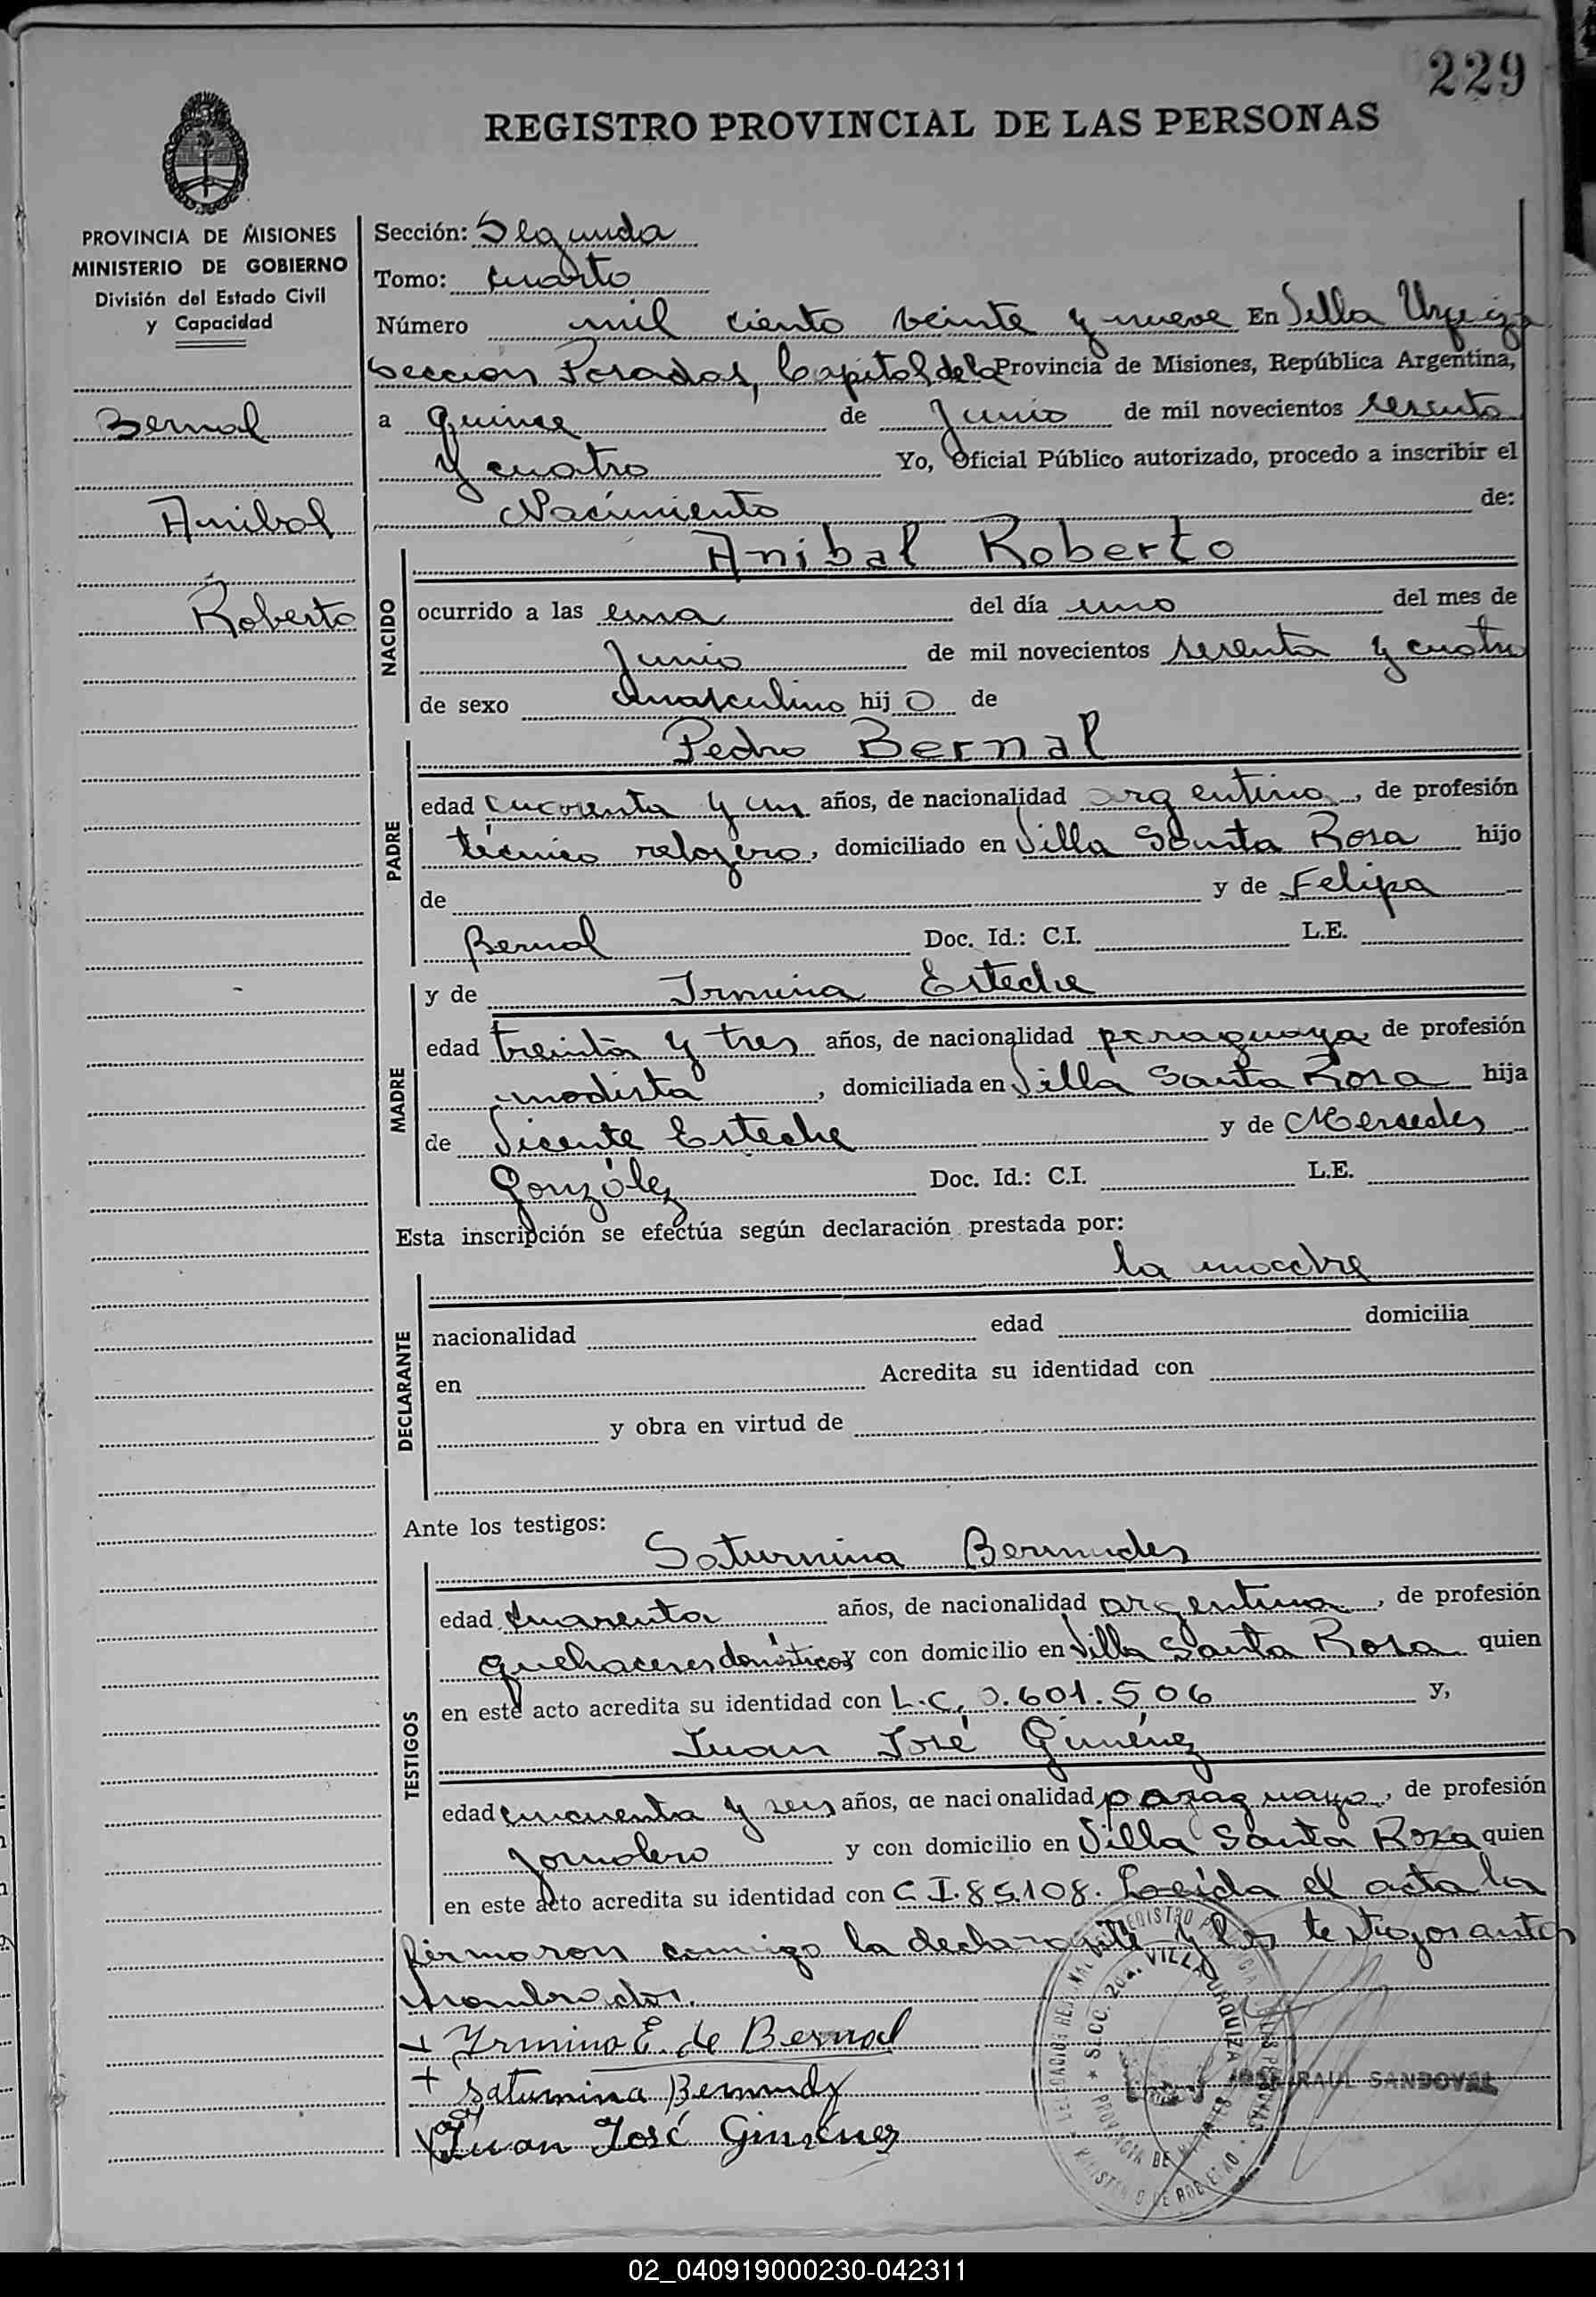 229
REGISTRO PROVINCIAL DE LAS PERSONAS
PROVINCIA DE MISIONES
MINISTERIO DE GOBIERNO
División del Estado Civil
y Capacidad
Bernal
Anibal
Roberto
Sección: Segunda
Tomo: cuarto
Número mil ciento veinte y nueve En Villa Urquiza
Seccion Posadas, Capital de la Provincia de Misiones, República Argentina,
a quince de Junio de mil novecientos sesenta
y cuatro Yo, Oficial Público autorizado, procedo a inscribir el
Nacimiento de:
NACIDO
Anibal Roberto
ocurrido a las una del día uno del mes de
Junio de mil novecientos sesenta y cuatro
de sexo Masculino hijo de
PADRE
Pedro Bernal
edad cuarenta y un años, de nacionalidad argentino, de profesión
técnico relojero, domiciliado en Villa Santa Rosa hijo
de y de Felipa
Bernal Doc. Id.: C.I. L.E.
MADRE
y de Irmina Esteche
edad treinta y tres años, de nacionalidad paraguaya, de profesión
modista, domiciliada en Villa Santa Rosa hija
de Vicente Esteche y de Mercedes
González Doc. Id.: C.I. L.E.
Esta inscripción se efectúa según declaración prestada por:
DECLARANTE
la madre
nacionalidad edad domicilia
en Acredita su identidad con
y obra en virtud de
Ante los testigos:
TESTIGOS
Saturnina Bermudes
edad cuarenta años, de nacionalidad argentina, de profesión
quehaceres domésticos y con domicilio en Villa Santa Rosa quien
en este acto acredita su identidad con L.C. 0.601.506 y,
Juan José Giménez
edad cincuenta y seis años, de nacionalidad paraguayo, de profesión
jornalero y con domicilio en Villa Santa Rosa quien
en este acto acredita su identidad con C.I. 85.108. Leída el acta la
firmaron conmigo la declarante y los testigos antes
nombrados.
+ Yrmina E. de Bernal
+ Saturnina Bermudz
Juan José Giménez
SECC. 2da. VILLA URQUIZA
PROVINCIA DE MISIONES
MINISTERIO DE GOBIERNO
RAUL SANDOVAL
02_040919000230-042311